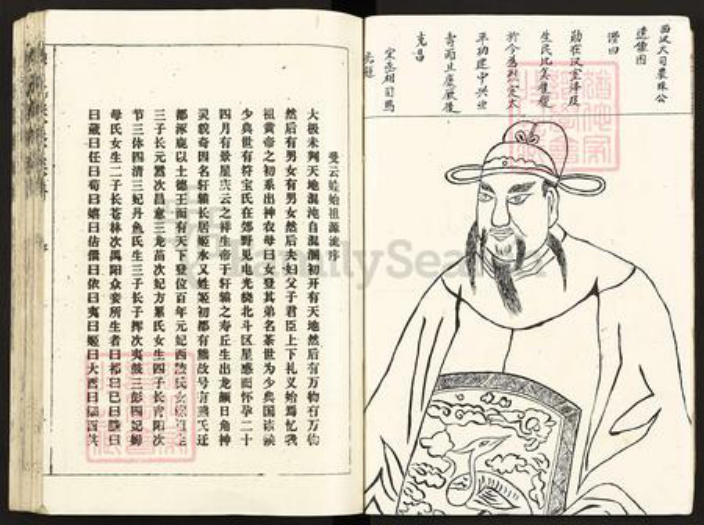 西汉大司农珠公
遗像图
赞曰
勋在汉室泽及
生民比
于今为烈
平功建中兴
寿而且康厥后
克昌
受云娃始祖源流序
太极未判天地混沌自混渊初开有天地然后有万物有万物
然后有男女有男女然后夫妇父子君臣上下礼义始焉忆我
祖黄帝之初系出神农母曰女登其弟名荼世为少典国诸侯
少典世有符宝氏在郊野见电光绕北斗区星感而怀孕二十
四月有景星庆云之祥生帝于轩辕之寿丘生出龙颜日角神
灵貌奇因名轩辕长居姬水又姓姬初都有熊故号有熊氏迁
都涿鹿以土德王而有天下登位百年元妃西陵氏
三子长元嚣次昌意三龙苗次妃方累氏女生四子长青阳次
节三休四清三妃丹鱼氏生三子长子挥次夷鼓三彭四妃嫫
母氏女生二子长苍林次禺阳众妾所生者曰祁曰己曰滕曰
曰葴曰任曰荀曰嬉曰姞儇曰依曰夷曰姬曰大
FamilySearch